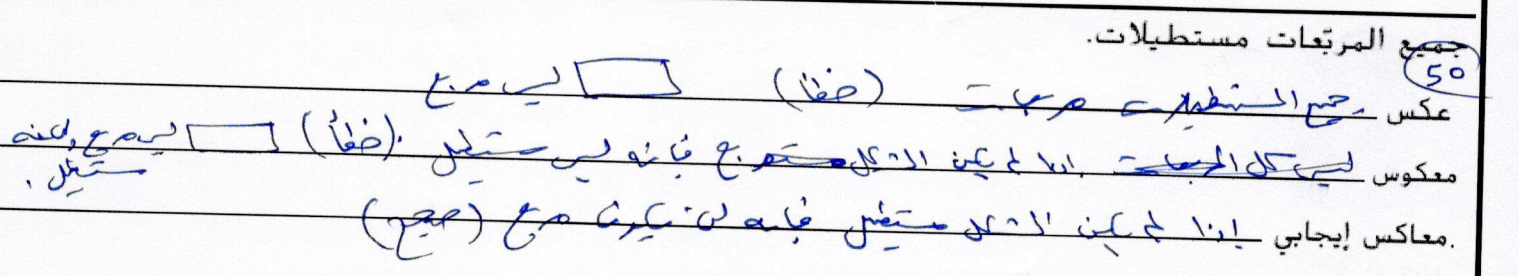 جميع المربّعات مستطيلات.
50
عكس جميع المستطيلات مربعات (خطأ) ليس مربع
معكوس ليس كل المربعات إذا لم يكن الشكل مربع فإنه ليس مستطيل. (خطأ) ليس مربع ولكنه مستطيل.
معاكس إيجابي إذا لم يكن الشكل مستطيل فإنه لن يكون مربع (صحيح)